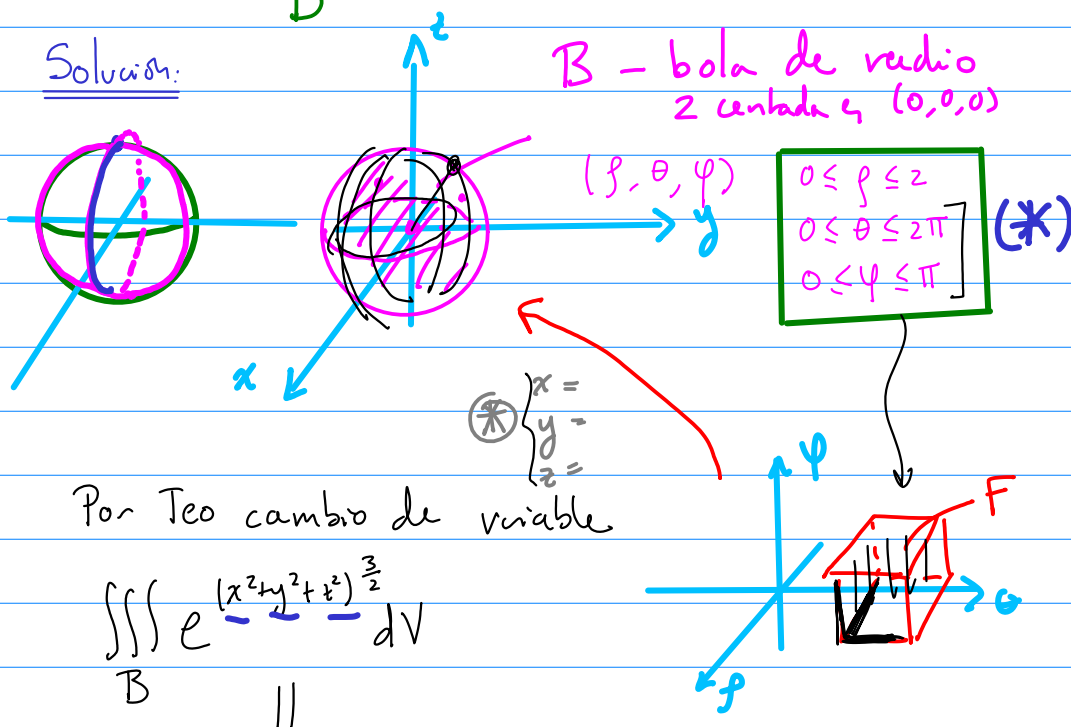 D
Solución:
z
B - bola de radio
2 centada en (0,0,0)
(ρ, θ, φ)
0 ≤ ρ ≤ 2
0 ≤ θ ≤ 2π
0 ≤ φ ≤ π
(*)
y
x
⊛ { x =
y =
z =
φ
F
Por Teo cambio de variable
∭ e^(x²+y²+z²)^(3/2) dV
B
θ
ρ
||